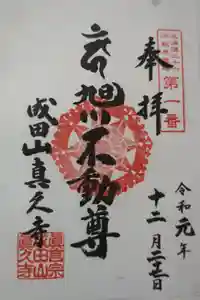 奉拝
第一番
令和元年
十二月二十二日
旭川不動尊
成田山真久寺